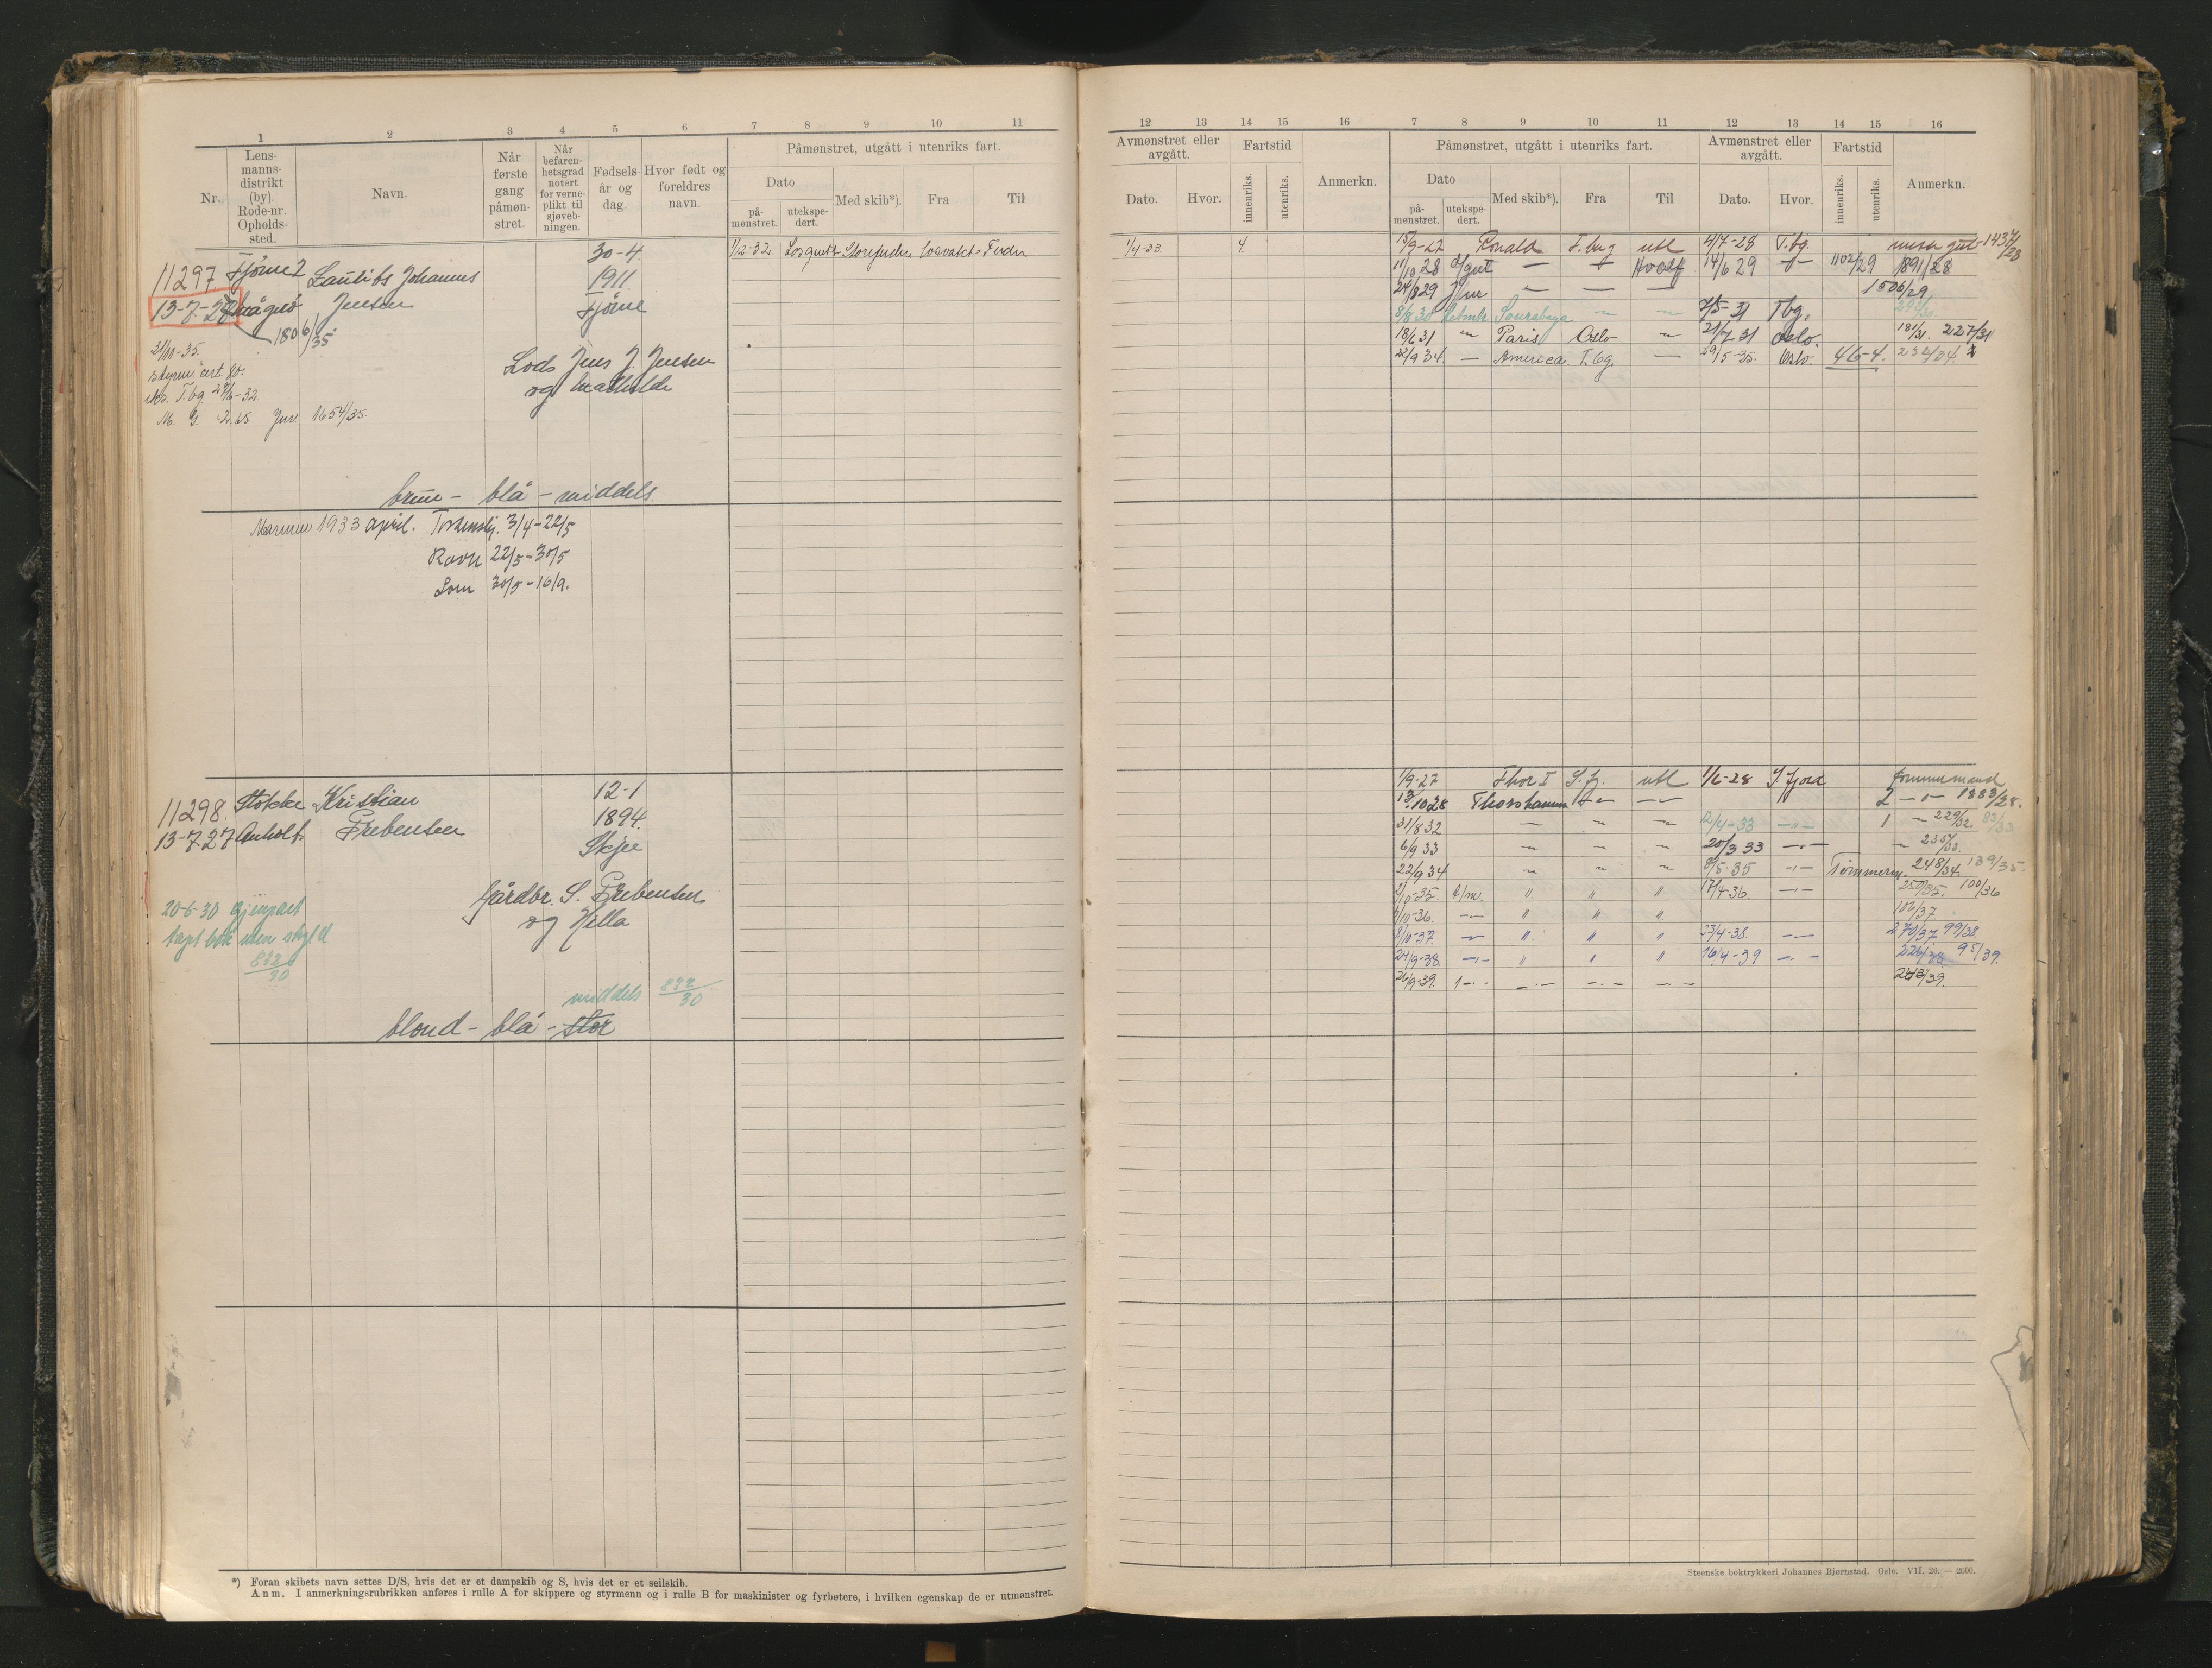 1 2 3 4 5 6 7 8 9 10 11
Nr.
Lens-
manns-
distrikt
(by).
Rode-nr.
Opholds-
sted.
Navn.
Når
første
gang
påmøn-
stret.
Når
befaren-
hetsgrad
notert
for verne-
plikt til
sjøveb-
ningen.
Fødsels-
år og
dag.
Hvor født og
foreldres
navn.
Påmønstret, utgått i utenriks fart.
Dato
på-
mønstret.
utekspe-
dert.
Med skib*).
Fra
Til
11297 Tjøme 2 Lauritz Johannes 30-4 1/12-32. Losgutt Storefæder losvaktst. Færder
13-7-28 Jensen 1911
Tjøme
1806/35
31/10-35.
Tbg 29/6-32
M. G. 2.65 Jnr. 1654/35.
Lods Jens J. Jensen
og Mathilde
brun - blå - middels.
Marinen 1933 april. Tordenskj. 3/4-22/5
Ravn 22/5-30/5
Lom 30/5-16/9.
11298. Stokke Kristian 12-1
13-7-27 Anholt. Frebensen 1894.
Skjee
Gårdbr. S. Frebensen
og Hella
20-6-30 gjenpart
tapt bok uten skyld
832/30
middels 832/30
blond - blå - stor
*) Foran skibets navn settes D/S, hvis det er et dampskib og S, hvis det er et seilskib.
Anm. I anmerkningsrubrikken anføres i rulle A for skippere og styrmenn og i rulle B for maskinister og fyrbøtere, i hvilken egenskap de er utmønstret.
12 13 14 15 16 7 8 9 10 11 12 13 14 15 16
Avmønstret eller
avgått.
Dato.
Hvor.
Fartstid
innenriks.
utenriks.
Anmerkn.
Påmønstret, utgått i utenriks fart.
Dato
på-
mønstret.
utekspe-
dert.
Med skib*).
Fra
Til
Avmønstret eller
avgått.
Dato.
Hvor.
Fartstid
innenriks.
utenriks.
Anmerkn.
1/4-33. 4. 15/9-27 Ronald T.bug utl 4/7-28 T.bg. messegut 1437/28
11/10 28 d/gut — — Hvalf 14/6 29 — 1102/29 1891/28
24/8 29 J/m — — — 1506/29
8/8 30 Sourabaya ~ ~ 7/5-31 Tbg. 292/30.
18/6 31 ~ Paris Oslo ~ 21/7 31 Oslo. 181/31. 227/31
22/9 34. — America. T.bg. — 29/5-35. Oslo. 46-4. 232/34.
1/9-27 Thor I S.fj. utl 1/6-28 S.fjord tømmermand
13/10 28 Thorshammer — — 2 — 1883/28.
31/8 32 ~ ~ ~ 2/4-33 — 1 ~ 229/32. 83/33
6/9 33 ~ ~ ~ 20/3 33 — ~ 235/33.
22/9 34 ~ ~ ~ 8/5-35 — Tømmerm. 248/34. 139/35.
2/10-35. t/m. " " " 17/4-36. — 250/35. 100/36
9/10-36. — " " " 106/37.
8/10-37. ~ " " " 23/4-38. — 270/37 99/38.
24/9-38. — " " " 16/4-39 — 226/38 95/39.
20/9-39. — — — — 243/39.
Steenske boktrykkeri Johannes Bjørnstad. Oslo. VII. 26. — 2000.